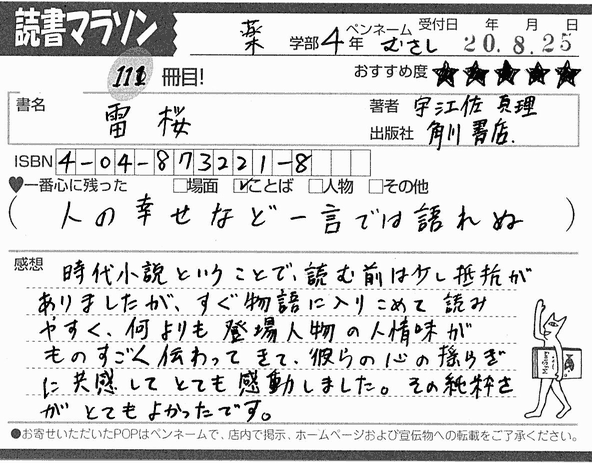 読書マラソン
薬 学部 4 年 ペンネーム むさし 受付日 年 月 日 20.8.25
111 冊目! おすすめ度 ★★★★★
書名 雷桜 著者 宇江佐真理
出版社 角川書店.
ISBN 4-04-873221-8
♥一番心に残った □場面 ☑ことば □人物 □その他
(人の幸せなど一言では語れぬ)
感想 時代小説ということで、読む前は少し抵抗が
ありましたが、すぐ物語に入りこめて読み
やすく、何よりも登場人物の人情味が
ものすごく伝わってきて、彼らの心の揺らぎ
に共感してとても感動しました。その純粋さ
がとてもよかったです。
●お寄せいただいたPOPはペンネームで、店内で掲示、ホームページおよび宣伝物への転載をご了承ください。